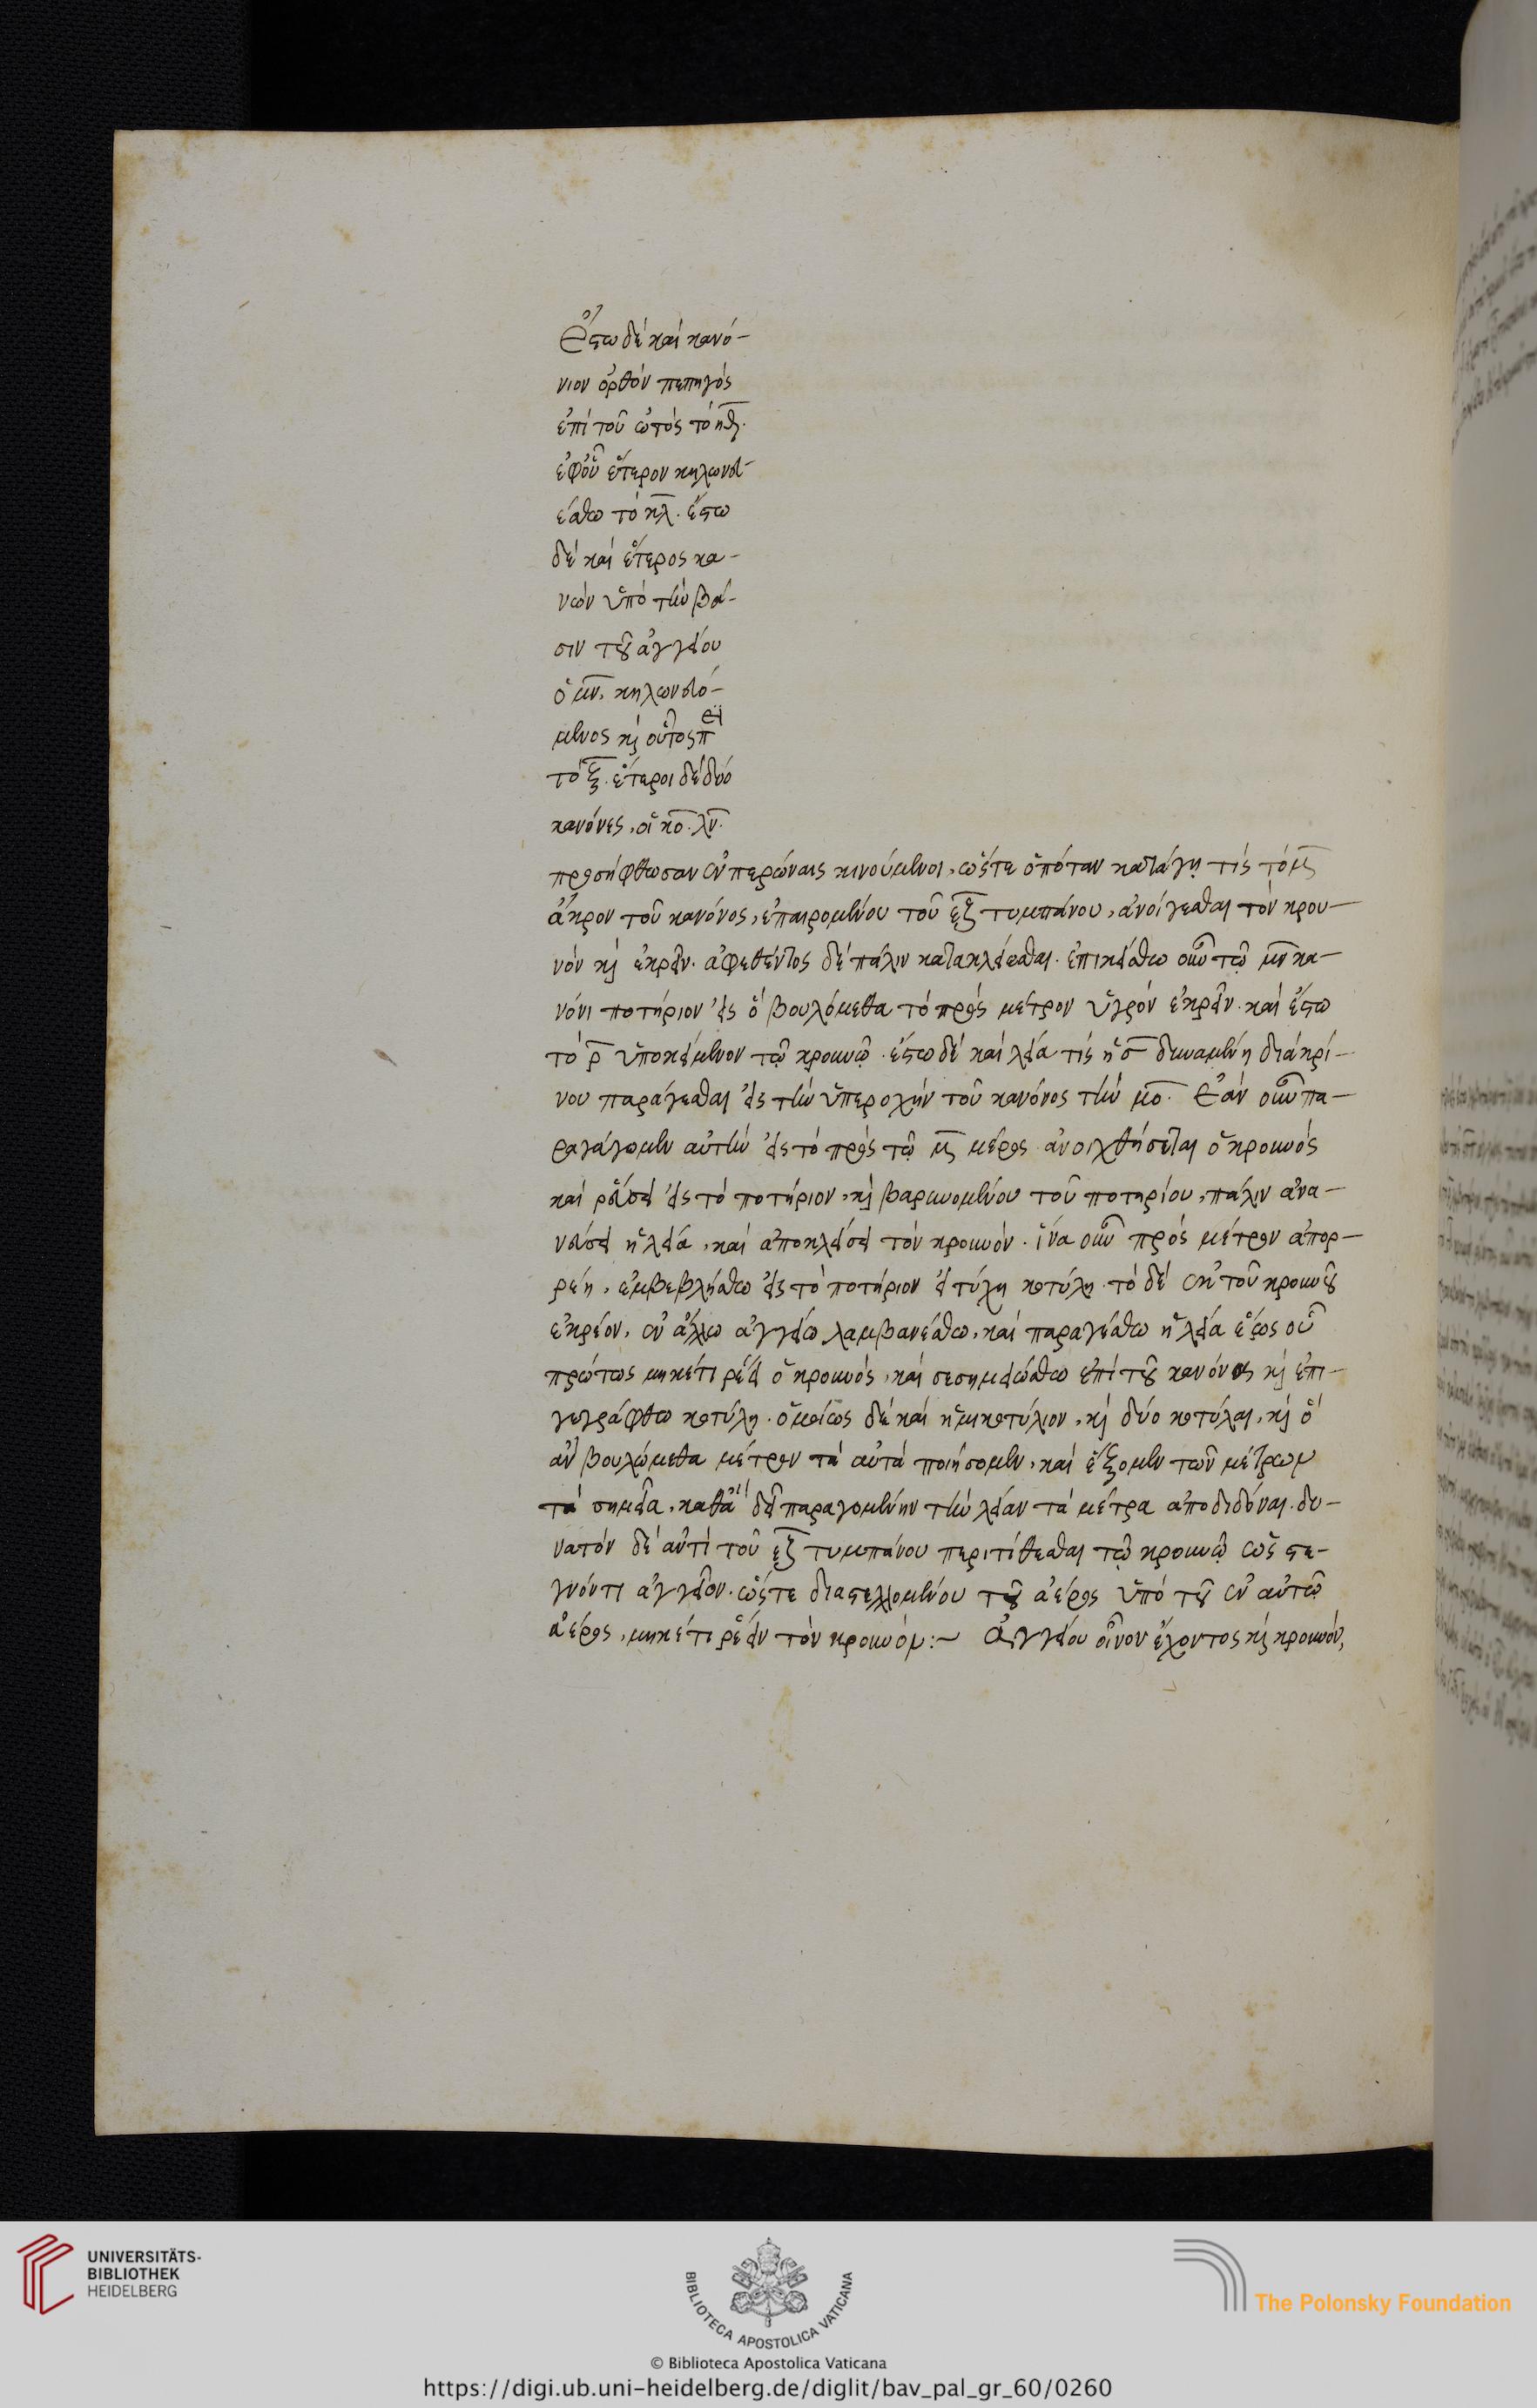 Ἔστω δὲ καὶ κανό-
νιον ὀρθὸν πεπηγὸς
ἐπὶ τοῦ ὠτὸς τὸ ηθ.
ἐφ' οὗ ἕτερον κηλωνευ-
έσθω τὸ κλ. ἔστω
δὲ καὶ ἕτερος κα-
νὼν ὑπὸ τὴν βά-
σιν τοῦ ἀγγείου
ὁ μν, κηλωνευό-
μενος κὶ οὗτος
τὸ ξ. ἕτεροι δὲ δύο
κανόνες, οἱ κο. λν.
προσήφθωσαν ἐν περώναις κινούμενοι, ὥστε ὁπόταν κατάγῃ τίς τὸ μς
ἄκρον τοῦ κανόνος, ἐπαιρομένου τοῦ εξ τυμπάνου, ἀνοίγεσθαι τὸν κρου-
νὸν κὶ ἐκρεῖν. ἀφεθέντος δὲ πάλιν κατακλείεσθαι. ἐπικείσθω οὖν τῷ μν κα-
νόνι ποτήριον εἰς ὃ βουλόμεθα τὸ πρὸς μέτρον ὑγρὸν ἐκρεῖν. καὶ ἔστω
τὸ ρ ὑποκείμενον τῷ κρουνῷ. ἔστω δὲ καὶ λεία τίς ἡ σ δυναμένη διὰ κρί-
νου παράγεσθαι εἰς τὴν ὑπεροχὴν τοῦ κανόνος τὴν μο. Ἐὰν οὖν πα-
ραγάγωμεν αὐτὴν εἰς τὸ πρὸς τῷ μς μέρος ἀνοιχθήσεται ὁ κρουνὸς
καὶ ῥεύσει εἰς τὸ ποτήριον, κὶ βαρυνομένου τοῦ ποτηρίου, πάλιν ἀνα-
νεύσει ἡ λεία, καὶ ἀποκλείσει τὸν κρουνόν. ἵνα οὖν πρὸς μέτρον ἀπορ-
ρέῃ, ἐμβεβλήσθω εἰς τὸ ποτήριον εἰ τύχη κοτύλη. τὸ δὲ ἐκ τοῦ κρουνοῦ
ἐκρέον, ἐν ἄλλω ἀγγείω λαμβανέσθω, καὶ παραγέσθω ἡ λεία ἕως οὗ
πρώτως μηκέτι ῥέει ὁ κρουνὸς, καὶ σεσημειώσθω ἐπὶ τοῦ κανόνος κὶ ἐπι-
γεγράφθω κοτύλη. ὁμοίως δὲ καὶ ἡμικοτύλιον, κὶ δύο κοτύλαι, κὶ ὃ
ἂν βουλώμεθα μέτρον τὰ αὐτὰ ποιήσομεν, καὶ ἕξομεν τῶν μέτρων
τὰ σημεῖα, καθ' ἃ δεῖ παραγομένην τὴν λείαν τὰ μέτρα ἀποδιδόναι. δυ-
νατὸν δὲ ἀντὶ τοῦ εξ τυμπάνου περιτίθεσθαι τῷ κρουνῷ ὡς στε-
γνόντι ἀγγεῖον. ὥστε διαστελλομένου τοῦ ἀέρος ὑπὸ τοῦ ἐν αὐτῷ
ἀέρος, μηκέτι ῥέειν τὸν κρουνόν:— Ἀγγείου οἶνον ἔχοντος κὶ κρουνὸν,
UNIVERSITÄTS-
BIBLIOTHEK
HEIDELBERG
BIBLIOTECA APOSTOLICA VATICANA
© Biblioteca Apostolica Vaticana
The Polonsky Foundation
https://digi.ub.uni-heidelberg.de/diglit/bav_pal_gr_60/0260